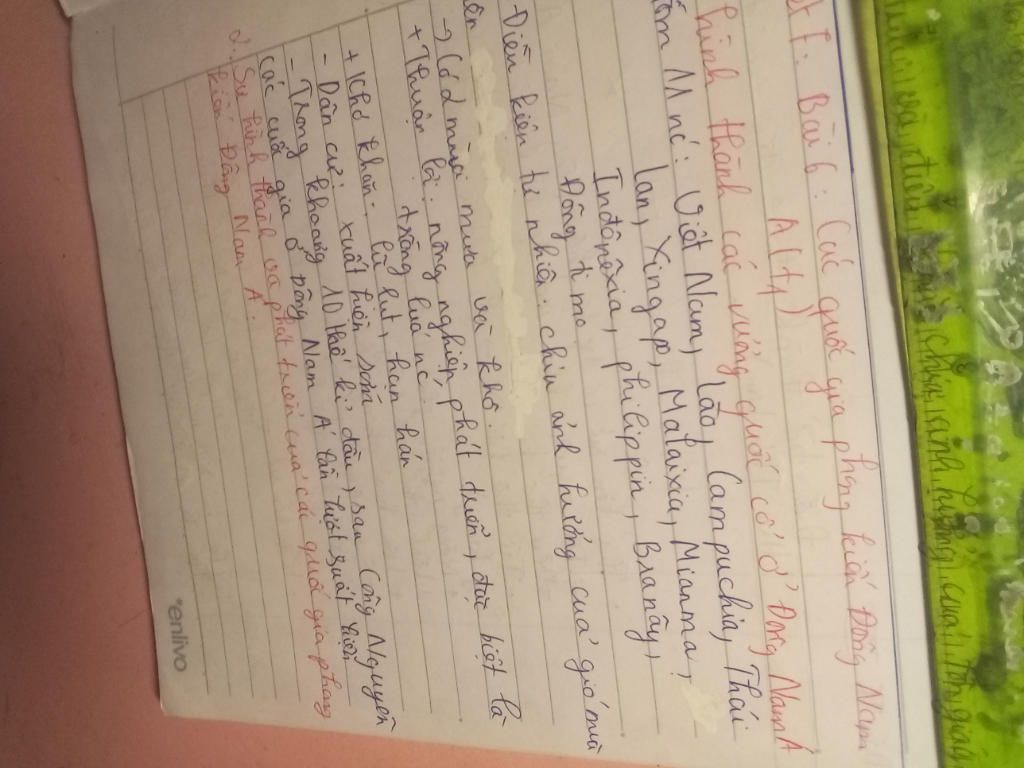 Bài 6: Các quốc gia phong kiến Đông Nam
Á (t1)
hình thành các vương quốc cổ ở Đông Nam Á
11 nc: Việt Nam, Lào, Campuchia, Thái
lan, Xingapo, Malaixia, Mianma,
Inđônêxia, philippin, Branây,
Đông timo
Điều kiện tự nhiên: chịu ảnh hưởng của gió mùa
→ Có 2 mùa mưa và khô.
+ Thuận lợi: nông nghiệp, phát triển, đặc biệt là
trồng lúa nc.
+ Khó khăn: lũ lụt, hạn hán
- Dân cư: xuất hiện sớm
- Trong khoảng 10 thế kỉ đầu, sau Công Nguyên
các quố gia ở Đông Nam Á lần lượt xuất hiện
2. Sự hình thành và phát triển của các quốc gia phong
kiến Đông Nam Á.
enlivo